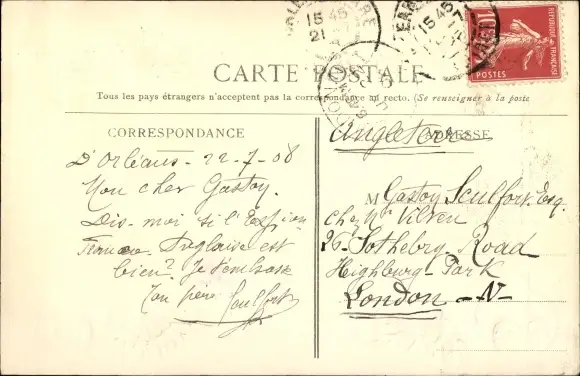 15 45
21
15 45
10
POSTES
RÉPUBLIQUE FRANÇAISE
CARTE POSTALE
Tous les pays étrangers n'acceptent pas la correspondance au recto. (Se renseigner à la poste
CORRESPONDANCE
D'Orléans - 22-7-08
Mon cher Gastoy.
Dis-moi si l'Expion
Franco-Anglaise est
bien? Je t'embrasse
Ton père Sculfort
ADRESSE
Angleterre
M Gastoy Sculfort Esq.
chez Mr
26 Sotheby Road
Highbury-Park
London - N -